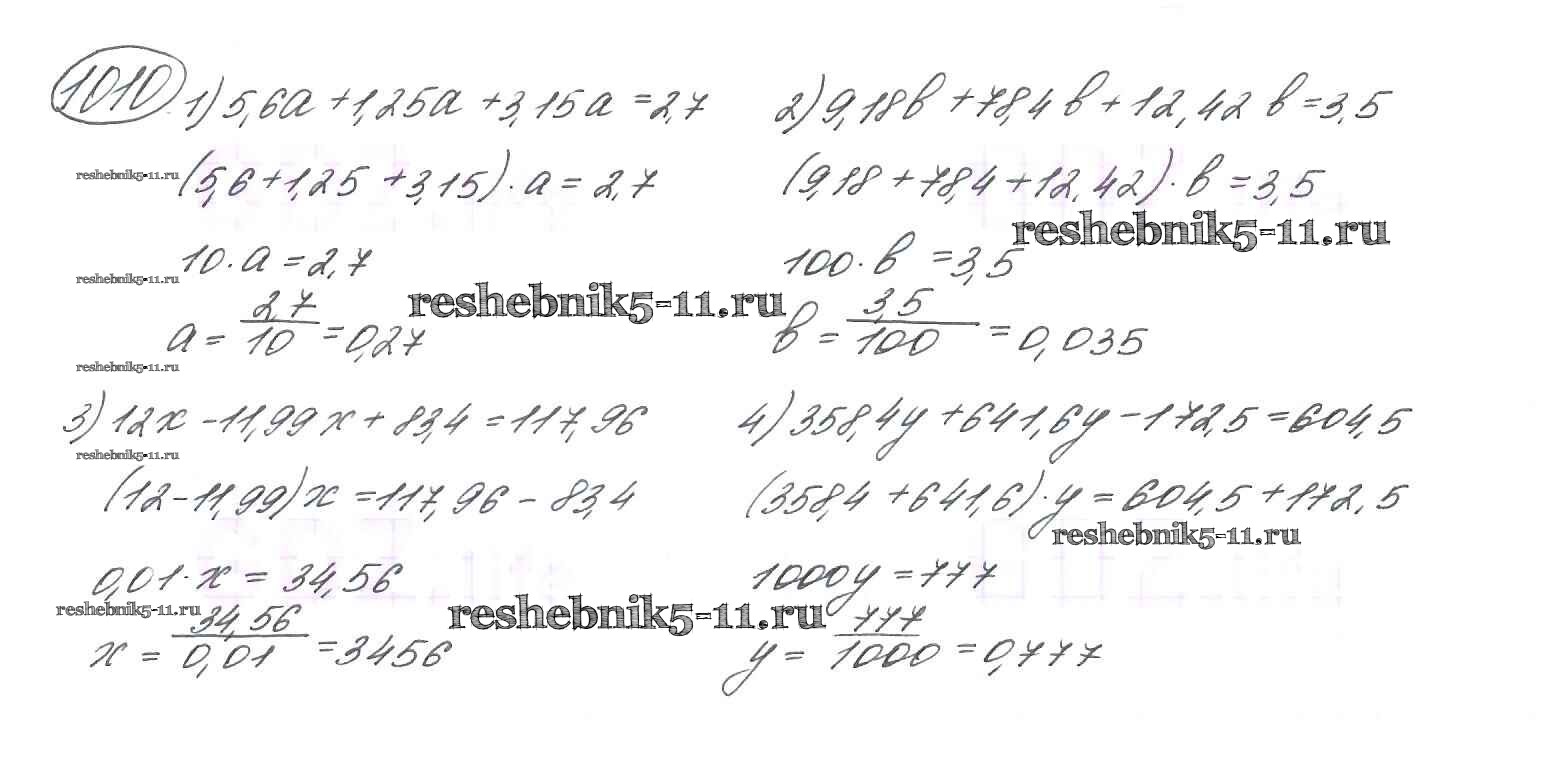 1010 1) 5,6a + 1,25a + 3,15a = 2,7
(5,6 + 1,25 + 3,15) · a = 2,7
10 · a = 2,7
a = 2,7/10 = 0,27
2) 9,18b + 78,4b + 12,42b = 3,5
(9,18 + 78,4 + 12,42) · b = 3,5
100 · b = 3,5
b = 3,5/100 = 0,035
3) 12x - 11,99x + 83,4 = 117,96
(12 - 11,99)x = 117,96 - 83,4
0,01 · x = 34,56
x = 34,56/0,01 = 3456
4) 358,4y + 641,6y - 172,5 = 604,5
(358,4 + 641,6) · y = 604,5 + 172,5
1000y = 777
y = 777/1000 = 0,777
reshebnik5-11.ru
reshebnik5-11.ru
reshebnik5-11.ru
reshebnik5-11.ru
reshebnik5-11.ru
reshebnik5-11.ru
reshebnik5-11.ru
reshebnik5-11.ru
reshebnik5-11.ru